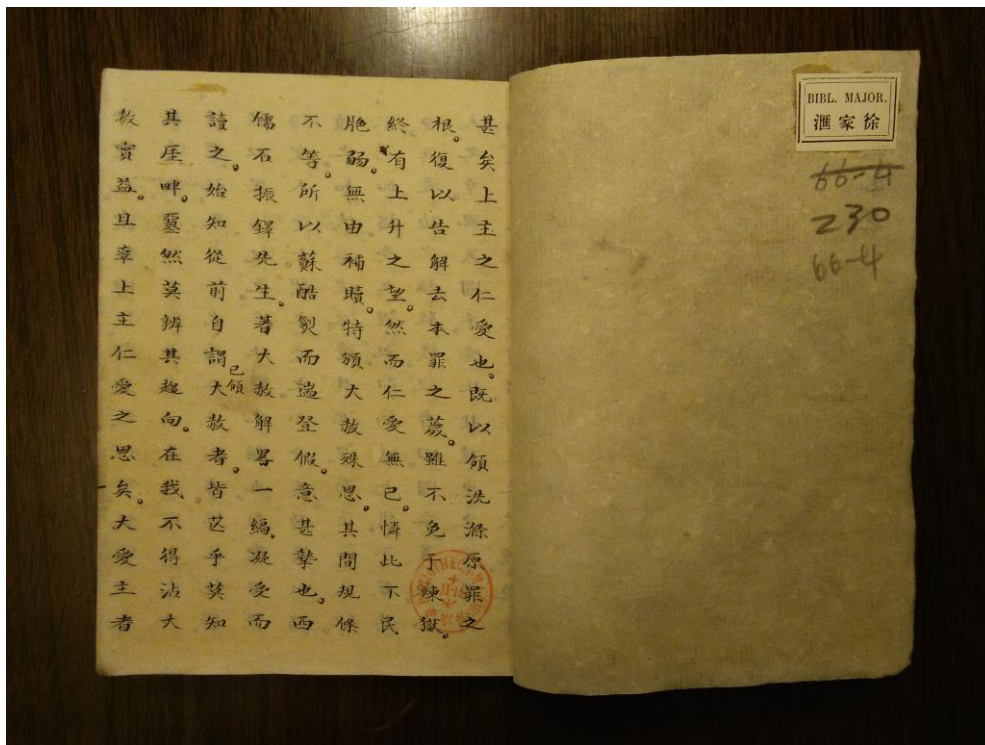 BIBL. MAJOR.
徐家滙
66-4
230
66-4
甚矣上主之仁愛也。既以領洗滌原罪之
根。復以告解去本罪之薉。雖不免于煉獄。
終有上升之望。然而仁愛無已。憐此下民
脆弱。無由補贖。特頒大赦殊恩。其間規條
不等。所以蘇酷而遄登假。意甚摯也。西
儒石振鐸先生。著大赦解畧一編。凝受而
讀之。始知從前自謂已領大赦者。皆茫乎莫知
其厓畔。然莫辨其趨向。在我不得沾大
赦實益。且辜上主仁愛之恩矣。夫愛主者